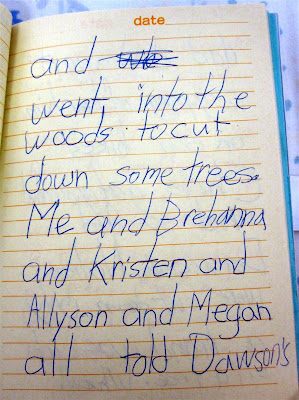 date
and
went into the
woods to cut
down some trees.
Me and Brehanna
and Kristen and
Allyson and Megan
all told Dawson's